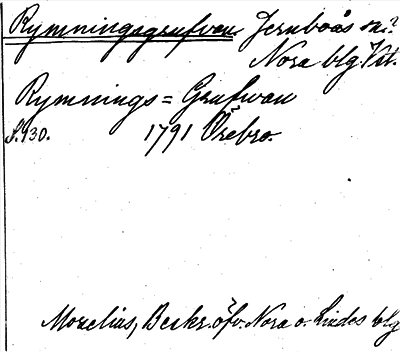 Rymningsgrufvan Jernboås sn?
Nora blg. Vstl.
Rymnings=Grufwan
S. 130. 1791 Örebro.
Morelius, Beskr. öfv. Nora o. Lindes blg